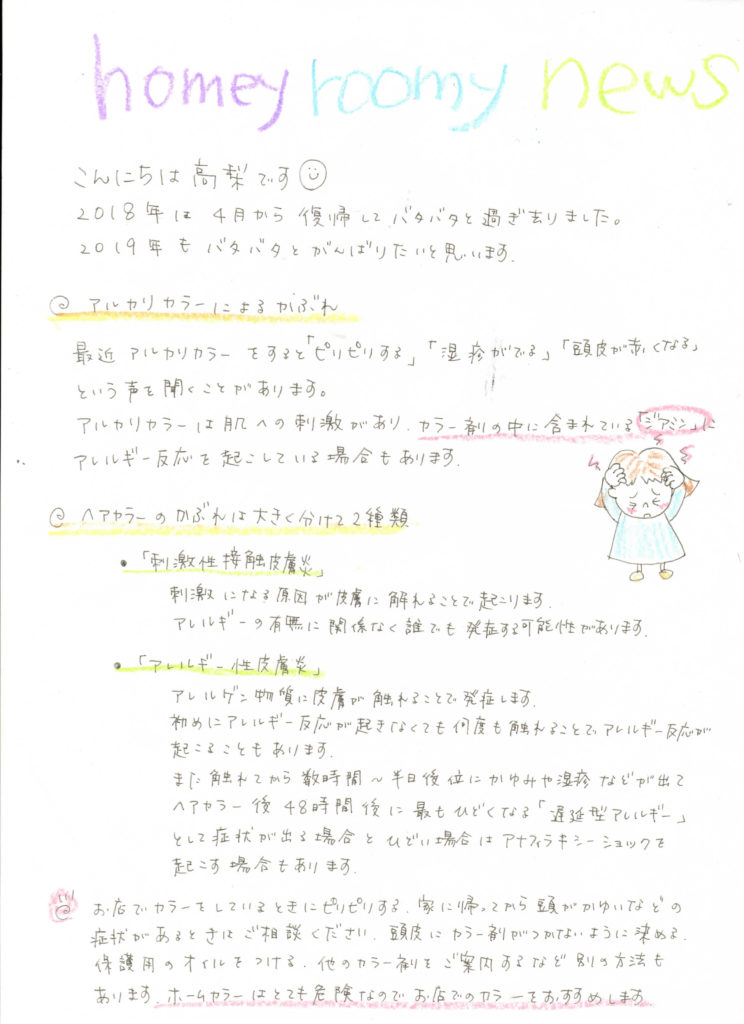 homey roomy news
こんにちは高梨です
2018年は4月から復帰してバタバタと過ぎ去りました。
2019年もバタバタとがんばりたいと思います.
アルカリカラーによるかぶれ
最近アルカリカラーをすると「ピリピリする」「湿疹がでる」「頭皮が赤くなる」
という声を聞くことがあります。
アルカリカラーは肌への刺激があり、カラー剤の中に含まれている「ジアミン」に
アレルギー反応を起こしている場合もあります.
ヘアカラーのかぶれは大きく分けて2種類
・「刺激性接触皮膚炎」
刺激になる原因が皮膚に解れることで起こります.
アレルギーの有無に関係なく誰でも発症する可能性があります.
・「アレルギー性皮膚炎」
アレルゲン物質に皮膚が触れることで発症します.
初めにアレルギー反応が起きなくても何度も触れることでアレルギー反応が
起こることもあります.
また触れてから数時間～半日後位にかゆみや湿疹などが出て
ヘアカラー後48時間後に最もひどくなる「遅延型アレルギー」
として症状が出る場合とひどい場合はアナフィラキシーショックを
起こす場合もあります.
お店でカラーをしているときにピリピリする、家に帰ってから頭がかゆいなどの
症状があるときはご相談ください.頭皮にカラー剤がつかないように染める、
保護用のオイルをつける、他のカラー剤をご案内するなど別の方法も
あります.ホームカラーはとても危険なのでお店でのカラーをおすすめします